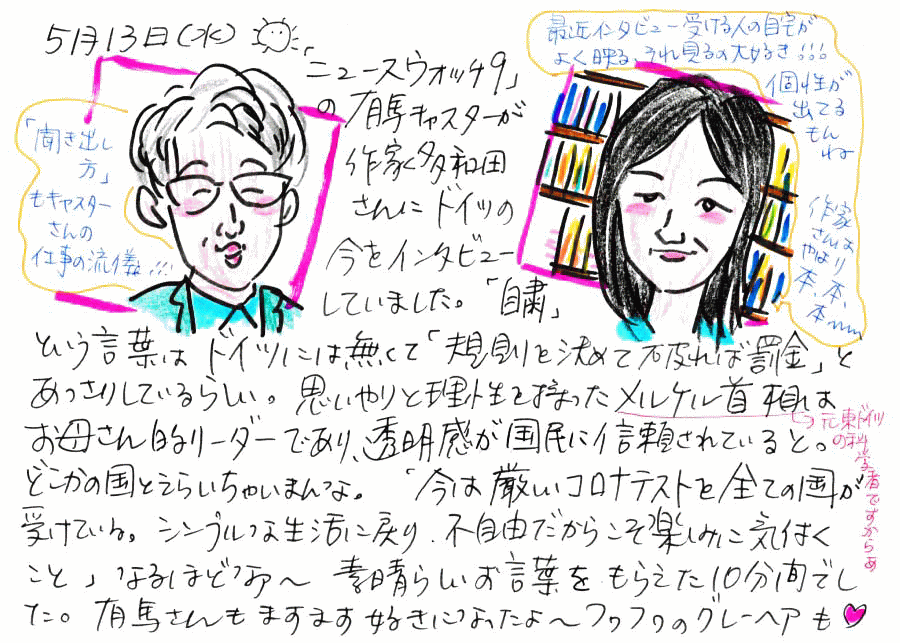 5月13日(水)
「ニュースウォッチ9」
の有馬キャスターが
作家多和田
さんにドイツの
今をインタビュー
していました。「自粛」
という言葉はドイツには無くて「規則を決めて破れば罰金」と
あっさりしているらしい。思いやりと理性を持ったメルケル首相は
お母さん的リーダーであり、透明感が国民に信頼されていると。
どこかの国とえらいちゃいまんな。「今は厳しいコロナテストを全ての国が
受けている。シンプルな生活に戻り、不自由だからこそ楽しみに気付く
こと」なるほどなァ〜 素晴らしいお言葉をもらえた10分間でし
た。有馬さんもますます好きになったよ〜フワフワのグレーヘアも♥
「聞き出し
方」
もキャスター
さんの
仕事の流儀!!!
最近インタビュー受ける人の自宅が
よく映る、それ見るの大好き!!!
個性が
出てる
もん
ね
作家
さんは
やはり
本、本、
本
元東ドイツ
の科学者ですからぁ